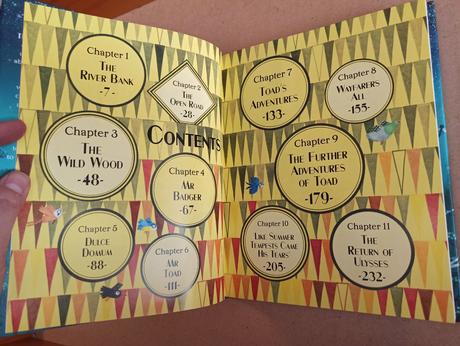 Chapter 1
The
River Bank
-7-
Chapter 2
The
Open Road
-28-
Contents
Chapter 3
The
Wild Wood
-48-
Chapter 4
Mr
Badger
-67-
Chapter 5
Dulce
Domum
-88-
Chapter 6
Mr
Toad
-111-
Chapter 7
Toad's
Adventures
-133-
Chapter 8
Wayfarers
All
-155-
Chapter 9
The Further
Adventures
of Toad
-179-
Chapter 10
'Like Summer
Tempests Came
His Tears'
-205-
Chapter 11
The
Return of
Ulysses
-232-